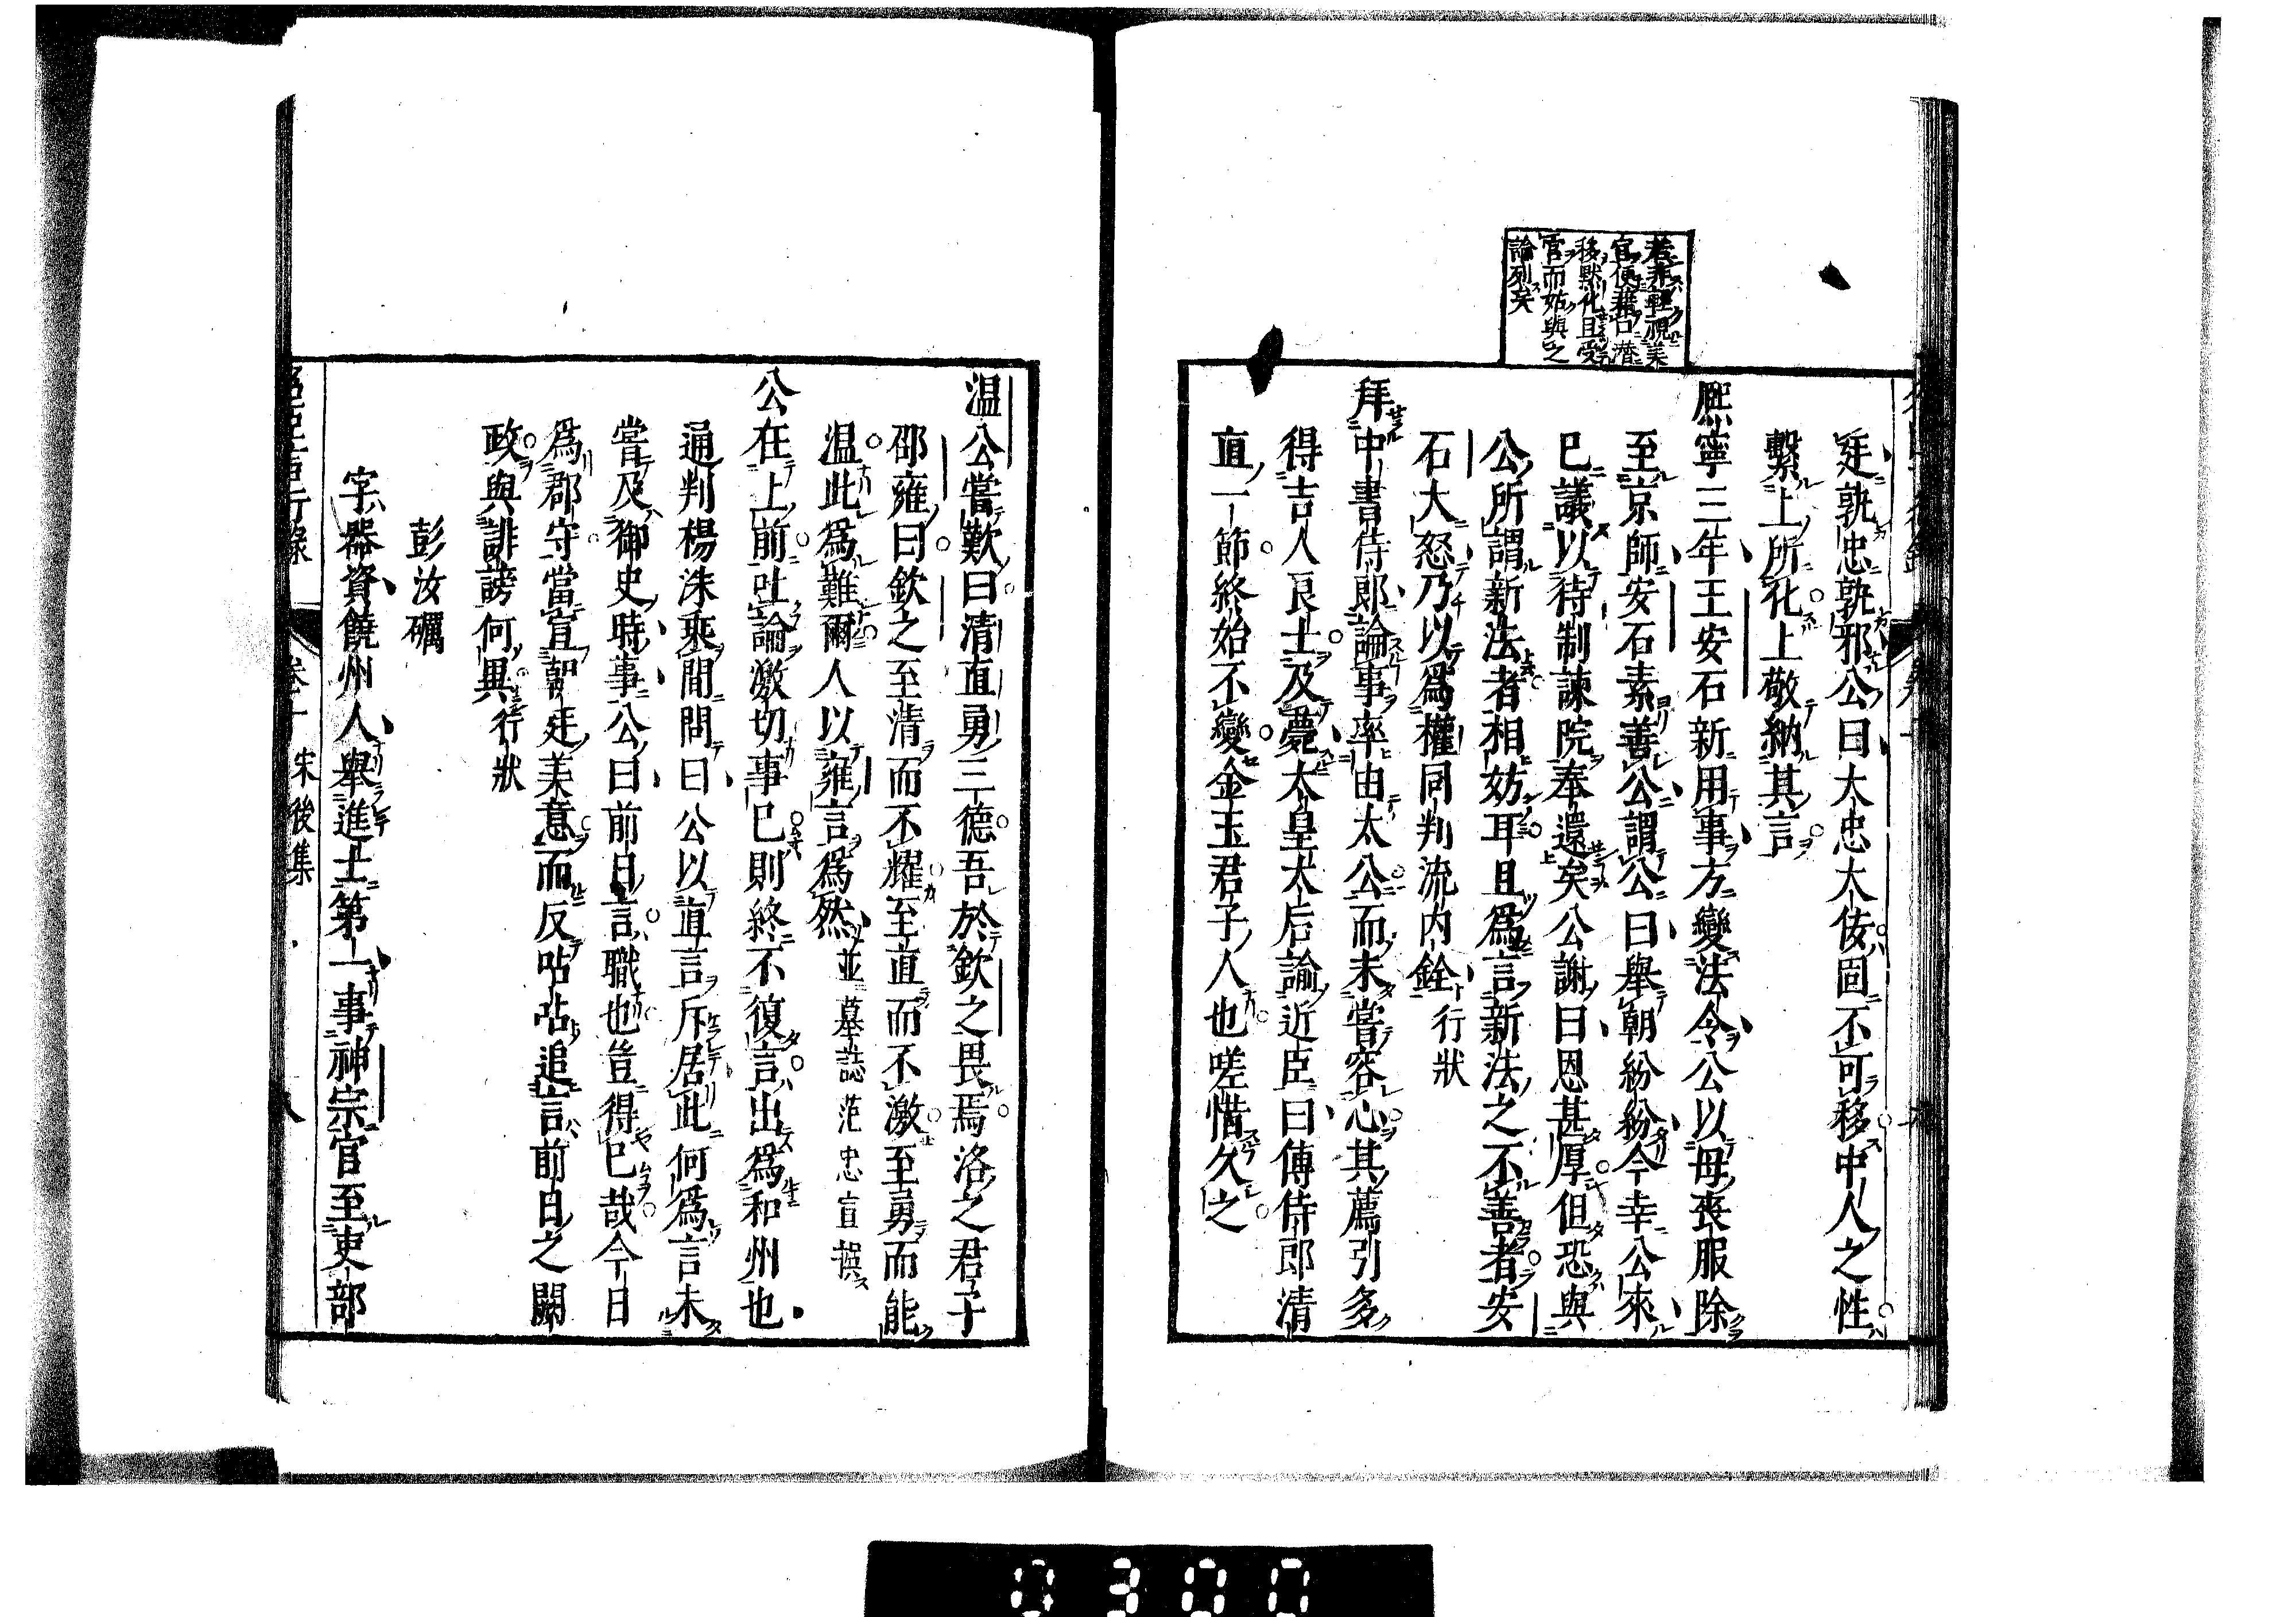 若非輕視美
官便藉口潛
移默化且受
官而姑與之
論列矣
廷孰忠孰邪公曰大忠大佞固不可移中人之性
繫上所化上敬納其言
熈寧三年王安石新用事方變法令公以母喪服除
至京師安石素善公謂公曰舉朝紛紛今幸公來
已議以待制諫院奉還矣公謝曰恩甚厚但恐與
公所謂新法者相妨耳且爲言新法之不善者安
石大怒乃以爲權同判流内銓行狀
拜中書侍郎論事率由太公而未嘗容心其薦引多
得吉人良士及薨太皇太后諭近臣曰傅侍郎清
直一節終始不變金玉君子人也嗟惜久之
温公嘗歎曰清直勇三德吾於欽之畏焉洛之君子
邵雍曰欽之至清而不耀至直而不激至勇而能
温此爲難爾人以雍言爲然並墓誌范忠宣撰
公在上前吐論激切事已則終不復言出爲和州也
通判楊洙乘間問曰公以直言斥居此何爲言未
嘗及御史時事公曰前日言職也豈得已哉今日
爲郡守當宣朝廷美意而反呫呫追言前日之闕
政與誹謗何異行狀
彭汝礪
字器資饒州人舉進士第一事神宗官至吏部
名臣言行錄 卷十 宋後集 八